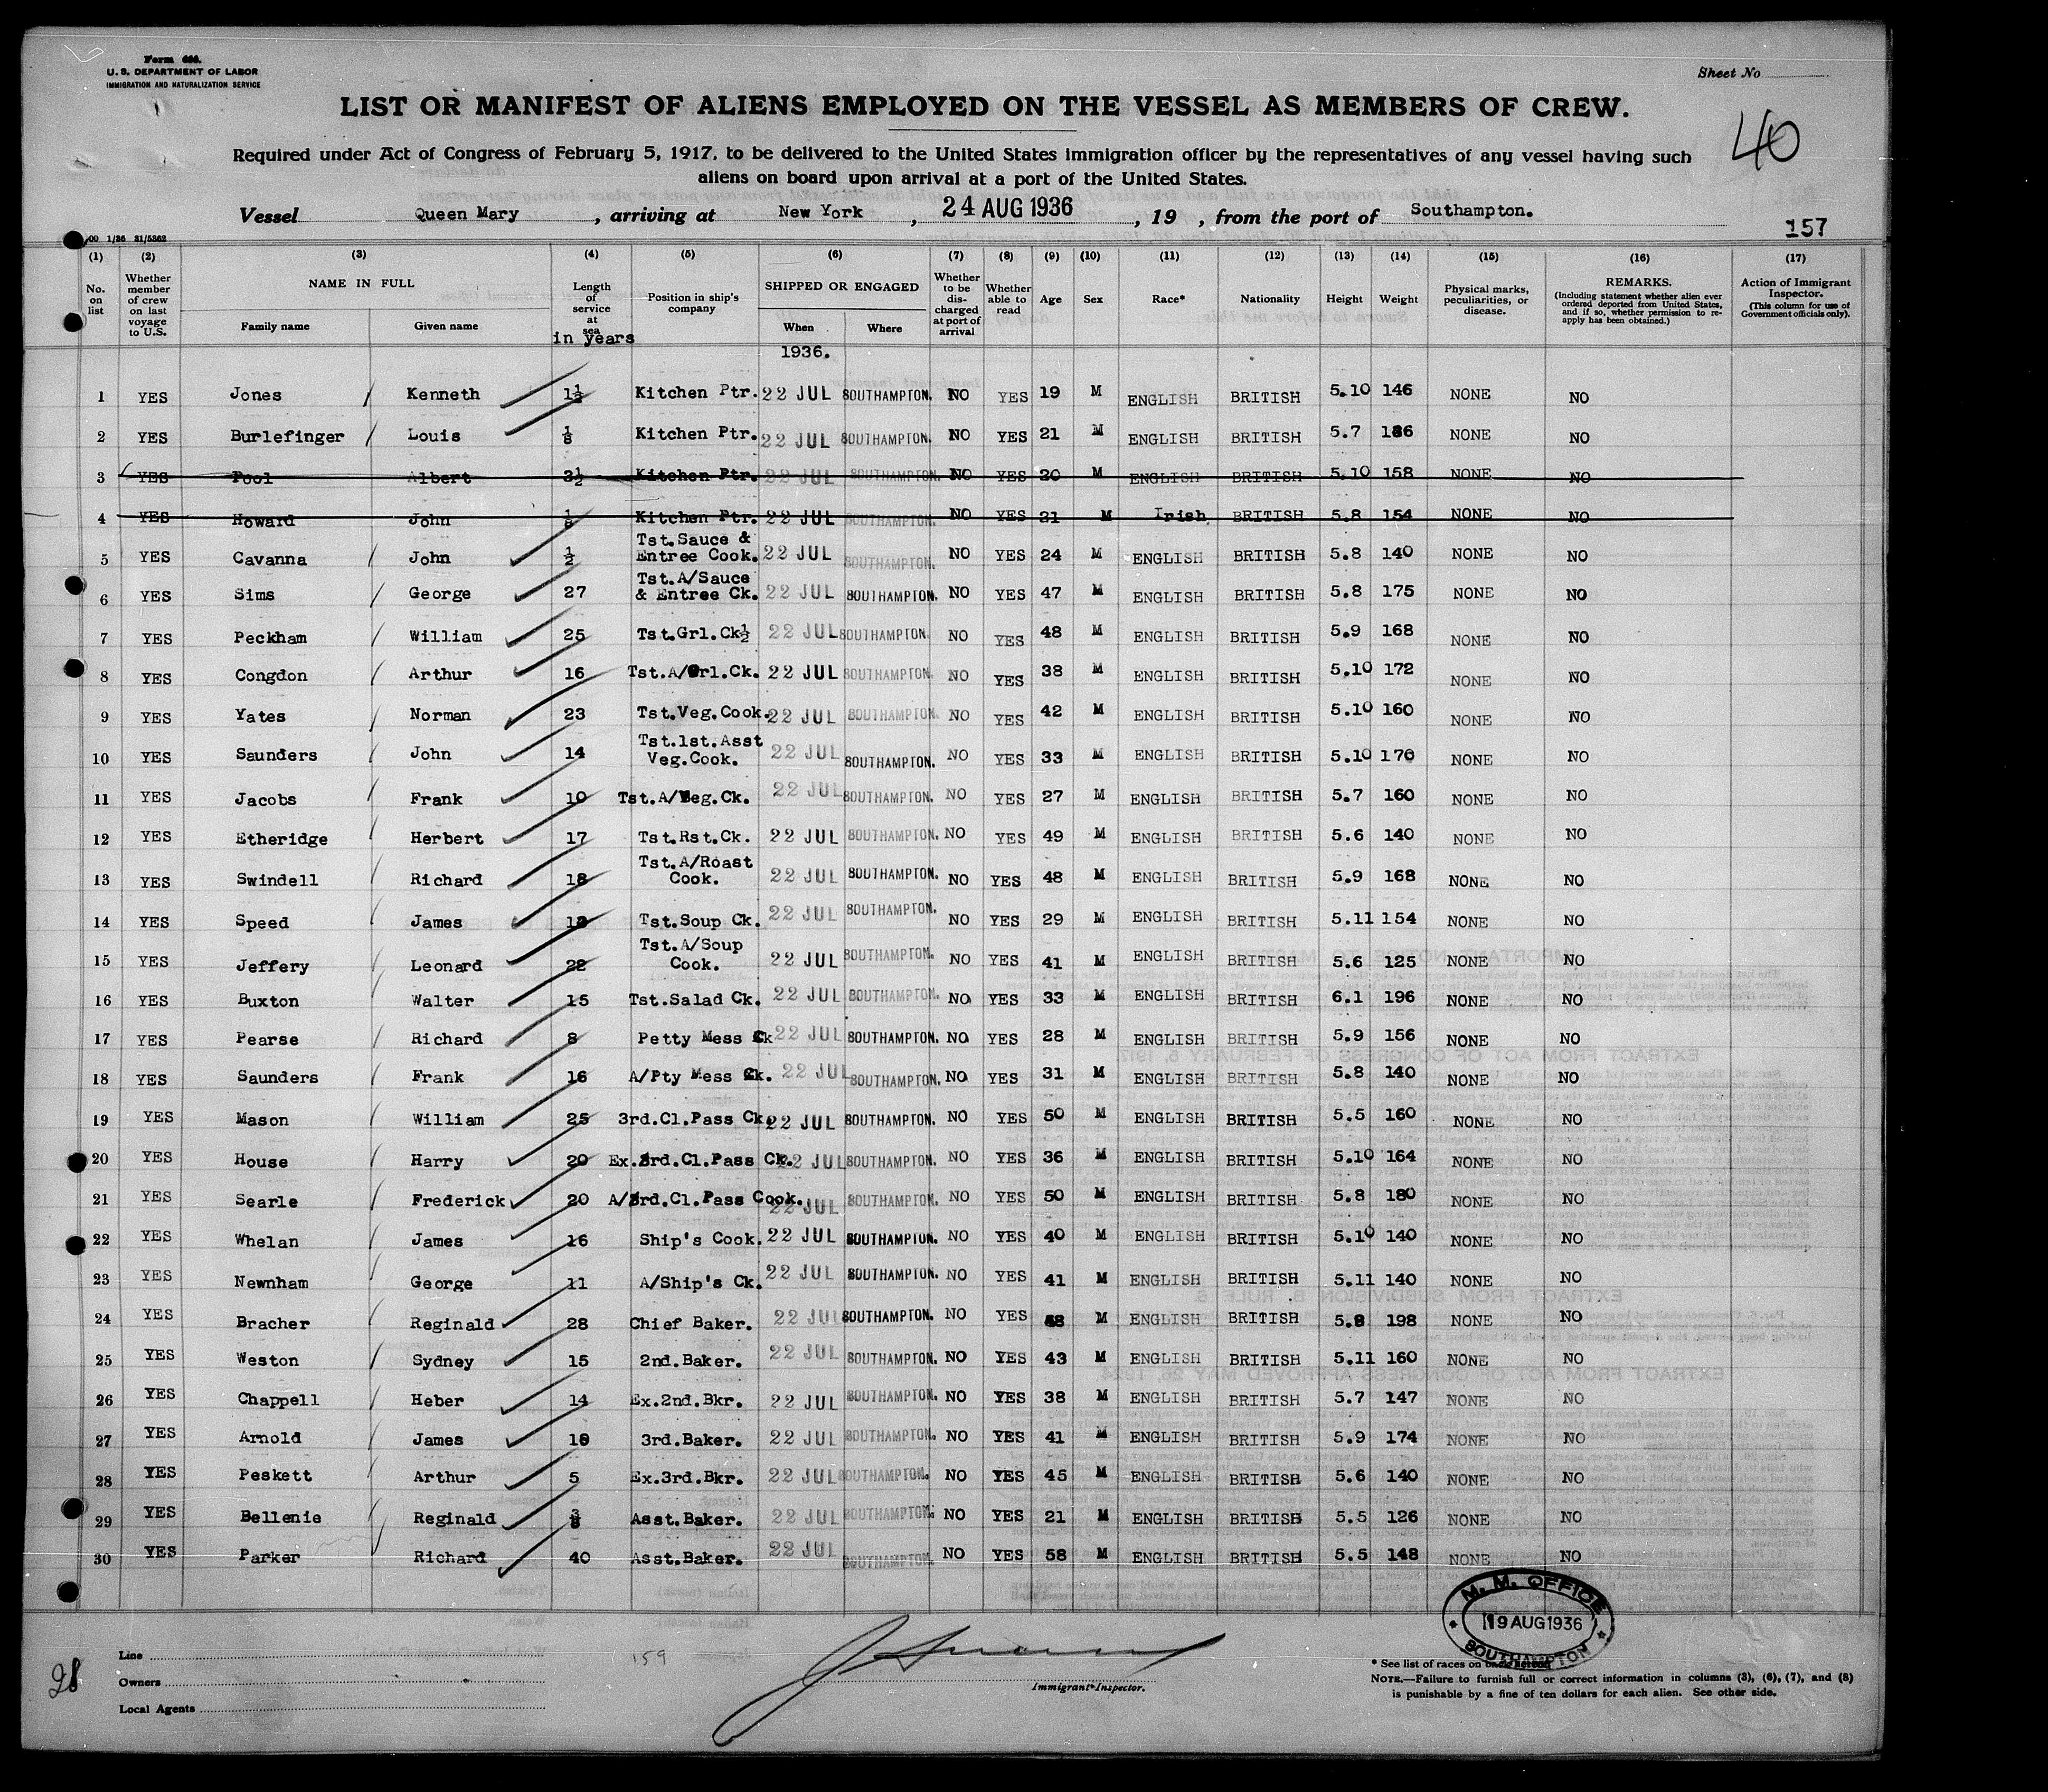 Form 680.
U. S. DEPARTMENT OF LABOR
IMMIGRATION AND NATURALIZATION SERVICE
Sheet No
LIST OR MANIFEST OF ALIENS EMPLOYED ON THE VESSEL AS MEMBERS OF CREW.
40
Required under Act of Congress of February 5, 1917, to be delivered to the United States immigration officer by the representatives of any vessel having such
aliens on board upon arrival at a port of the United States.
Vessel Queen Mary, arriving at New York, 24 AUG 1936, 19 , from the port of Southampton.
157
(1) (2) (3) (4) (5) (6) (7) (8) (9) (10) (11) (12) (13) (14) (15) (16) (17)
No. on list
Whether member of crew on last voyage to U.S.
NAME IN FULL
Family name Given name
Length of service at sea in years
Position in ship's company
SHIPPED OR ENGAGED
When Where
1936.
Whether to be discharged at port of arrival
Whether able to read
Age
Sex
Race*
Nationality
Height
Weight
Physical marks, peculiarities, or disease.
REMARKS.
(Including statement whether alien ever ordered deported from United States, and if so, whether permission to reapply has been obtained.)
Action of Immigrant Inspector.
(This column for use of Government officials only).
1 YES Jones Kenneth 1½ Kitchen Ptr. 22 JUL SOUTHAMPTON. NO YES 19 M ENGLISH BRITISH 5.10 146 NONE NO
2 YES Burlefinger Louis ⅛ Kitchen Ptr. 22 JUL SOUTHAMPTON. NO YES 21 M ENGLISH BRITISH 5.7 186 NONE NO
3 YES Pool Albert 3½ Kitchen Ptr. 22 JUL SOUTHAMPTON. NO YES 20 M ENGLISH BRITISH 5.10 158 NONE NO
4 YES Howard John Kitchen Ptr. 22 JUL SOUTHAMPTON. NO YES 21 M Irish BRITISH 5.8 154 NONE NO
5 YES Cavanna John ½ Tst.Sauce & Entree Cook. 22 JUL SOUTHAMPTON. NO YES 24 M ENGLISH BRITISH 5.8 140 NONE NO
6 YES Sims George 27 Tst.A/Sauce & Entree Ck. 22 JUL SOUTHAMPTON. NO YES 47 M ENGLISH BRITISH 5.8 175 NONE NO
7 YES Peckham William 25 Tst.Grl.Ck½ 22 JUL SOUTHAMPTON. NO YES 48 M ENGLISH BRITISH 5.9 168 NONE NO
8 YES Congdon Arthur 16 Tst.A/Grl.Ck. 22 JUL SOUTHAMPTON. NO YES 38 M ENGLISH BRITISH 5.10 172 NONE NO
9 YES Yates Norman 23 Tst.Veg.Cook. 22 JUL SOUTHAMPTON. NO YES 42 M ENGLISH BRITISH 5.10 160 NONE NO
10 YES Saunders John 14 Tst.1st.Asst Veg.Cook. 22 JUL SOUTHAMPTON. NO YES 33 M ENGLISH BRITISH 5.10 170 NONE NO
11 YES Jacobs Frank 10 Tst.A/Veg.Ck. 22 JUL SOUTHAMPTON. NO YES 27 M ENGLISH BRITISH 5.7 160 NONE NO
12 YES Etheridge Herbert 17 Tst.Rst.Ck. 22 JUL SOUTHAMPTON. NO YES 49 M ENGLISH BRITISH 5.6 140 NONE NO
13 YES Swindell Richard 18 Tst.A/Roast Cook. 22 JUL SOUTHAMPTON. NO YES 48 M ENGLISH BRITISH 5.9 168 NONE NO
14 YES Speed James Tst.Soup Ck. 22 JUL SOUTHAMPTON. NO YES 29 M ENGLISH BRITISH 5.11 154 NONE NO
15 YES Jeffery Leonard 22 Tst.A/Soup Cook. 22 JUL SOUTHAMPTON. NO YES 41 M ENGLISH BRITISH 5.6 125 NONE NO
16 YES Buxton Walter 15 Tst.Salad Ck. 22 JUL SOUTHAMPTON. NO YES 33 M ENGLISH BRITISH 6.1 196 NONE NO
17 YES Pearse Richard 8 Petty Mess Ck 22 JUL SOUTHAMPTON. NO YES 28 M ENGLISH BRITISH 5.9 156 NONE NO
18 YES Saunders Frank 16 A/Pty Mess Ck. 22 JUL SOUTHAMPTON. NO YES 31 M ENGLISH BRITISH 5.8 140 NONE NO
19 YES Mason William 25 3rd.Cl.Pass Ck. 22 JUL SOUTHAMPTON. NO YES 50 M ENGLISH BRITISH 5.5 160 NONE NO
20 YES House Harry 20 Ex.3rd.Cl.Pass Ck. 22 JUL SOUTHAMPTON. NO YES 36 M ENGLISH BRITISH 5.10 164 NONE NO
21 YES Searle Frederick 20 A/3rd.Cl.Pass Cook. 22 JUL SOUTHAMPTON. NO YES 50 M ENGLISH BRITISH 5.8 180 NONE NO
22 YES Whelan James 16 Ship's Cook. 22 JUL SOUTHAMPTON. NO YES 40 M ENGLISH BRITISH 5.10 140 NONE NO
23 YES Newnham George 11 A/Ship's Ck. 22 JUL SOUTHAMPTON. NO YES 41 M ENGLISH BRITISH 5.11 140 NONE NO
24 YES Bracher Reginald 28 Chief Baker. 22 JUL SOUTHAMPTON. NO YES M ENGLISH BRITISH 5.8 198 NONE NO
25 YES Weston Sydney 15 2nd.Baker. 22 JUL SOUTHAMPTON. NO YES 43 M ENGLISH BRITISH 5.11 160 NONE NO
26 YES Chappell Heber 14 Ex.2nd.Bkr. 22 JUL SOUTHAMPTON. NO YES 38 M ENGLISH BRITISH 5.7 147 NONE NO
27 YES Arnold James 3rd.Baker. 22 JUL SOUTHAMPTON. NO YES 41 M ENGLISH BRITISH 5.9 174 NONE NO
28 YES Peskett Arthur 5 Ex.3rd.Bkr. 22 JUL SOUTHAMPTON. NO YES 45 M ENGLISH BRITISH 5.6 140 NONE NO
29 YES Bellenie Reginald Asst.Baker. 22 JUL SOUTHAMPTON. NO YES 21 M ENGLISH BRITISH 5.5 126 NONE NO
30 YES Parker Richard 40 Asst.Baker. 22 JUL SOUTHAMPTON. NO YES 58 M ENGLISH BRITISH 5.5 148 NONE NO
M. M. OFFICE
19 AUG 1936
SOUTHAMPTON
28
Line
159
Owners
Local Agents
Immigrant Inspector.
* See list of races on back hereof.
NOTE.—Failure to furnish full or correct information in columns (3), (6), (7), and (8)
is punishable by a fine of ten dollars for each alien. See other side.